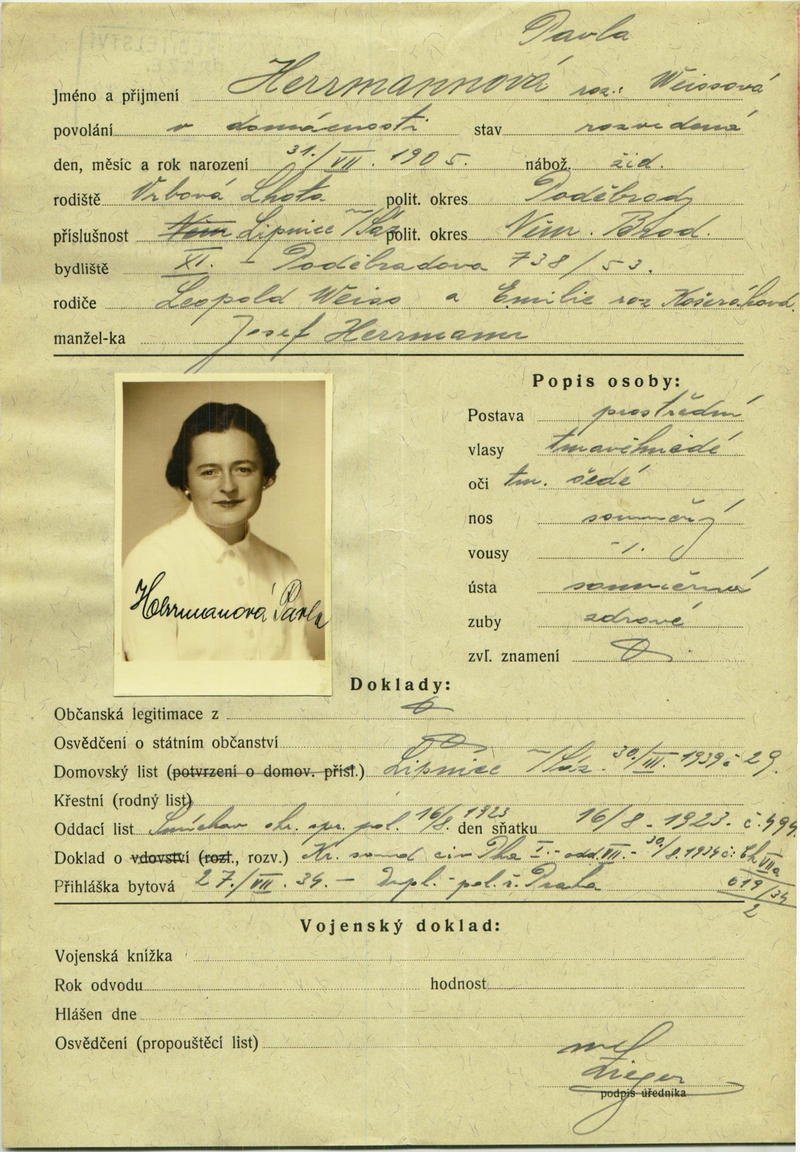 Pavla
Jméno a příjmení Herrmannová roz.: Weissová
povolání v domácnosti stav rozvedená
den, měsíc a rok narození 31/VII. 1905. nábož. žid.
rodiště Vrbová Lhota polit. okres Poděbrady
příslušnost Lipnice n/Sáz polit. okres Něm. Brod.
bydliště XI. Poděbradova 738/53.
rodiče Leopold Weiss a Emilie roz Košeráková
manžel-ka Josef Herrmann
Popis osoby:
Postava prostřední
vlasy tmavěhnědé
oči tm. šedé
nos souměrný
vousy -/.
ústa souměrná
zuby zdravé
zvľ. znamení
Herrmanová Pavla
Doklady:
Občanská legitimace z
Osvědčení o státním občanství
Domovský list (potvrzení o domov. přísl.) Lipnice n/Sáz. 30/III. 1939 č 29.
Křestní (rodný list)
Oddací list Smíchov okr. spr. pol. 16/8. 1923 den sňatku 16/8 - 1923. č. 494
Doklad o vdovství (rozl., rozv.) Kr. soud civ Pha I. - odd. VII. - 30/8. 1934 č: Ck VIIa 619/34 2
Přihláška bytová 27./VII. 34. - pol. ř. Praha
Vojenský doklad:
Vojenská knížka
Rok odvodu hodnost
Hlášen dne
Osvědčení (propouštěcí list)
Zieger
podpis úředníka